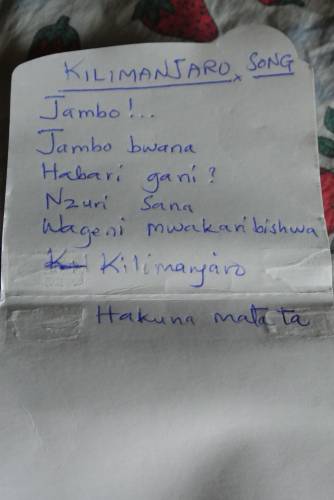 KILIMANJARO SONG
Jambo!...
Jambo bwana
Habari gani?
Nzuri Sana
Wageni mwakaribishwa
Kilimanjaro
Hakuna matata